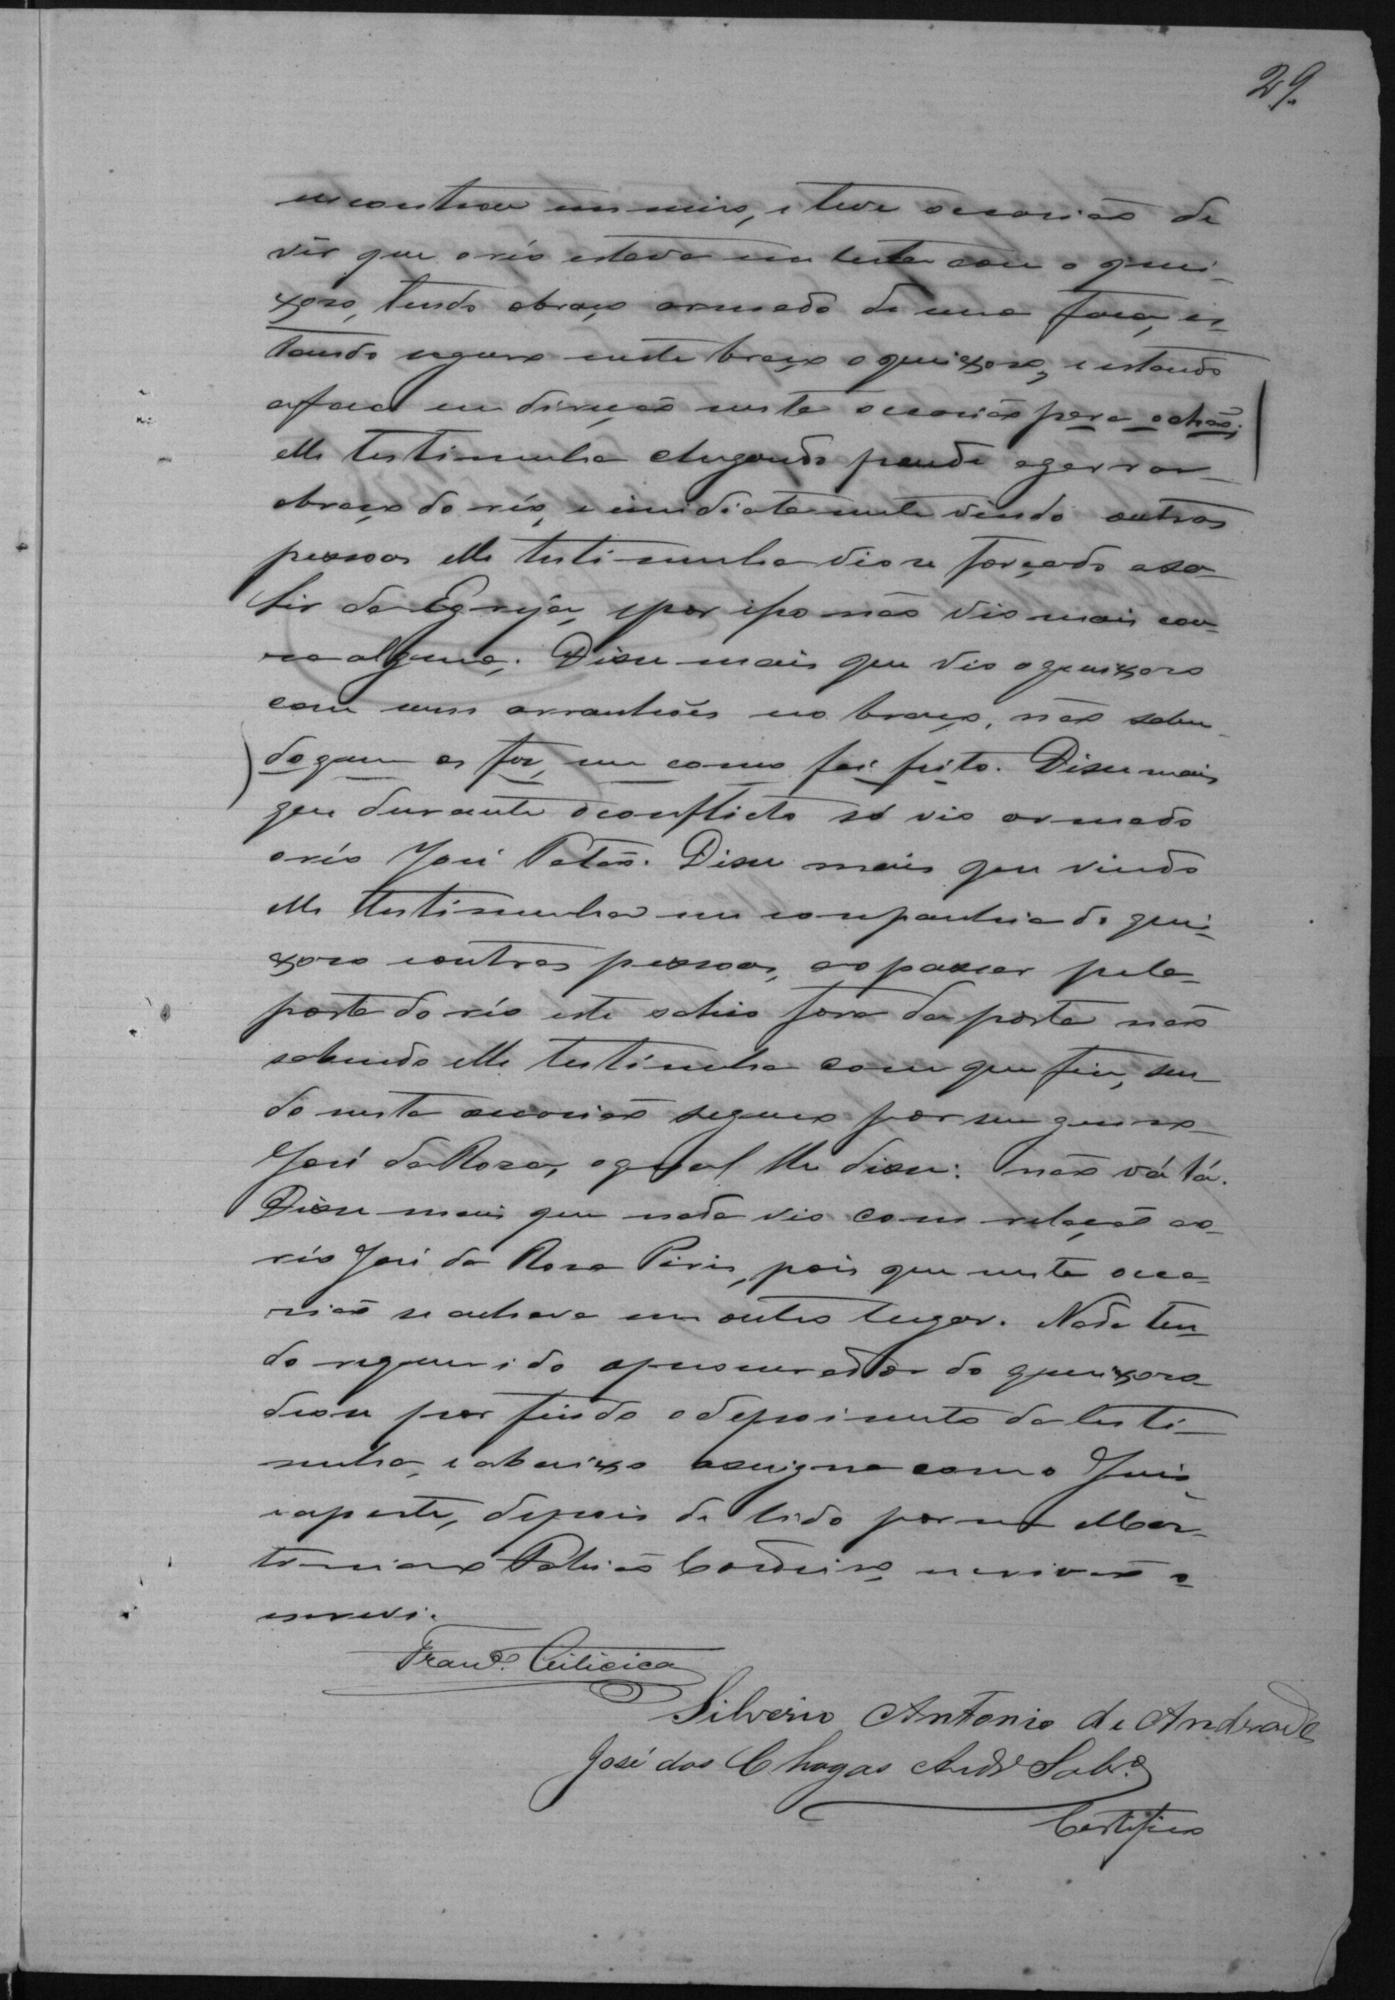 29.
encontrou um meio, e teve occasião de
vêr que o réo estava em luta com o quei-
xoso, tendo o braço armado de uma faca, es-
tando seguro neste braço o queixoso, e estando
a faca em direcção nesta occasião para o chão;
elle testimunha chegando poude agarrar
o braço do réo, e imidiatamente vindo outras
pessoas elle testimunha viose forçado a sa-
hir da Egreja, e por isso não vio mais cou-
sa alguma. Disse mais que vio o queixoso
com uns arranhões no braço, não saben-
do quem os fez, nem como foi feito. Disse mais
que durante o conflicto só vio armado
o réo José Patão. Disse mais que vindo
elle testimunha em companhia do quei-
xoso e outras pessoas, ao passar pela
porta do réo este sahio fora da porta não
sabendo elle testimunha com que fim, sen-
do nesta occasião seguro por seu genro
José da Rosa, o qual lhe disse: não vá lá.
Disse mais que nada vio com relação ao
réo José da Rosa Pires, pois que nesta occa-
sião se achava em outro lugar. Nada ten-
do requerido o procurador do queixoso
deuse por findo o depoimento da testi-
munha, e abaixo assigna com o Juis
e a parte, depois de lido por mim
Cordeiro, escrivão o
escrevi.
Silverio Antonio de Andrade
José das Chagas Andr.e Sobr.o
Certifico